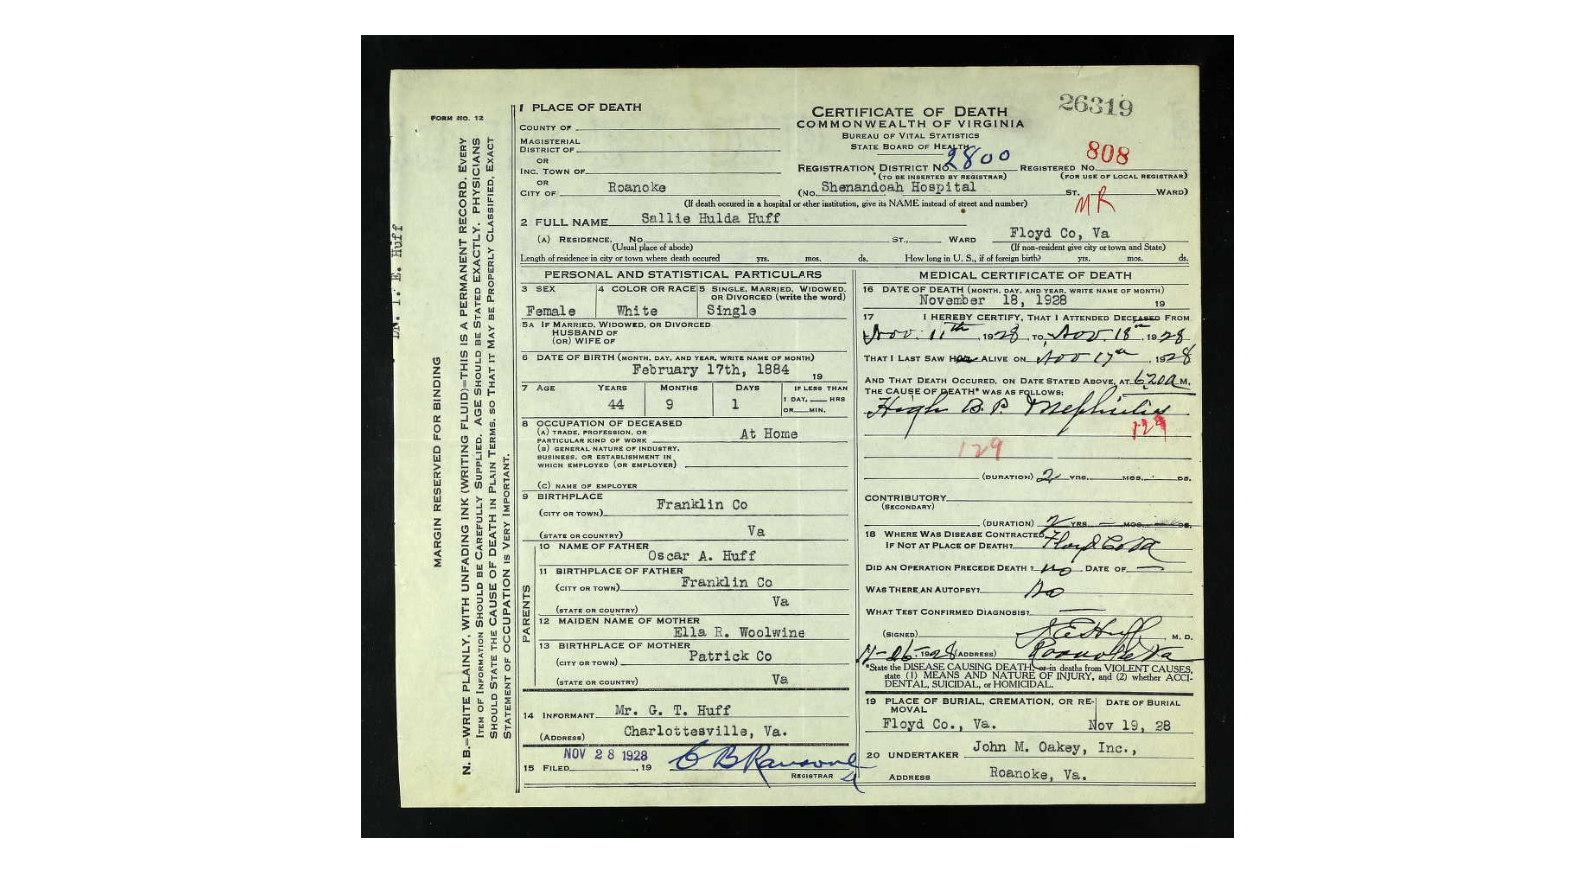 FORM NO. 12
MARGIN RESERVED FOR BINDING
N. B.—WRITE PLAINLY, WITH UNFADING INK (WRITING FLUID)—THIS IS A PERMANENT RECORD. EVERY
ITEM OF INFORMATION SHOULD BE CAREFULLY SUPPLIED. AGE SHOULD BE STATED EXACTLY. PHYSICIANS
SHOULD STATE THE CAUSE OF DEATH IN PLAIN TERMS, SO THAT IT MAY BE PROPERLY CLASSIFIED. EXACT
STATEMENT OF OCCUPATION IS VERY IMPORTANT.
E. Huff
1 PLACE OF DEATH
COUNTY OF
MAGISTERIAL
DISTRICT OF
OR
INC. TOWN OF
OR
CITY OF Roanoke
CERTIFICATE OF DEATH
COMMONWEALTH OF VIRGINIA
BUREAU OF VITAL STATISTICS
STATE BOARD OF HEALTH
26319
REGISTRATION DISTRICT NO. 2800 REGISTERED NO. 808
(TO BE INSERTED BY REGISTRAR) (FOR USE OF LOCAL REGISTRAR)
(NO. Shenandoah Hospital ST. WARD)
MR
(If death occured in a hospital or other institution, give its NAME instead of street and number)
2 FULL NAME Sallie Hulda Huff
(A) RESIDENCE. NO. ST., WARD Floyd Co, Va
(Usual place of abode) (If non-resident give city or town and State)
Length of residence in city or town where death occured yrs. mos. ds. How long in U. S., if of foreign birth? yrs. mos. ds.
PERSONAL AND STATISTICAL PARTICULARS
3 SEX 4 COLOR OR RACE 5 SINGLE, MARRIED, WIDOWED,
OR DIVORCED (write the word)
Female White Single
5A IF MARRIED, WIDOWED, OR DIVORCED
HUSBAND OF
(OR) WIFE OF
6 DATE OF BIRTH (MONTH, DAY, AND YEAR, WRITE NAME OF MONTH)
February 17th, 1884 19
7 AGE YEARS MONTHS DAYS IF LESS THAN
44 9 1 1 DAY, HRS
OR MIN.
8 OCCUPATION OF DECEASED
(A) TRADE, PROFESSION, OR
PARTICULAR KIND OF WORK At Home
(B) GENERAL NATURE OF INDUSTRY,
BUSINESS, OR ESTABLISHMENT IN
WHICH EMPLOYED (OR EMPLOYER)
(C) NAME OF EMPLOYER
9 BIRTHPLACE
(CITY OR TOWN) Franklin Co
(STATE OR COUNTRY) Va
PARENTS
10 NAME OF FATHER Oscar A. Huff
11 BIRTHPLACE OF FATHER
(CITY OR TOWN) Franklin Co
(STATE OR COUNTRY) Va
12 MAIDEN NAME OF MOTHER
Ella R. Woolwine
13 BIRTHPLACE OF MOTHER
(CITY OR TOWN) Patrick Co
(STATE OR COUNTRY) Va
14 INFORMANT Mr. G. T. Huff
(ADDRESS) Charlottesville, Va.
NOV 28 1928
15 FILED , 19 C B Ransone
REGISTRAR
MEDICAL CERTIFICATE OF DEATH
16 DATE OF DEATH (MONTH, DAY, AND YEAR, WRITE NAME OF MONTH)
November 18, 1928 19
17 I HEREBY CERTIFY, THAT I ATTENDED DECEASED FROM
Nov. 11th, 1928, TO Nov. 18th, 1928
THAT I LAST SAW HER ALIVE ON Nov 17th, 1928
AND THAT DEATH OCCURED, ON DATE STATED ABOVE, AT 620a M.
THE CAUSE OF DEATH* WAS AS FOLLOWS:
High B.P. Nephritis
129
129
(DURATION) 2 YRS. MOS. DS.
CONTRIBUTORY
(SECONDARY)
(DURATION) 2 YRS. — MOS. DS.
18 WHERE WAS DISEASE CONTRACTED
IF NOT AT PLACE OF DEATH? Floyd Co Va
DID AN OPERATION PRECEDE DEATH? no DATE OF —
WAS THERE AN AUTOPSY? No
WHAT TEST CONFIRMED DIAGNOSIS?
(SIGNED) I. E. Huff, M. D.
11-26-1928 (ADDRESS) Roanoke Va
*State the DISEASE CAUSING DEATH, or in deaths from VIOLENT CAUSES,
state (1) MEANS AND NATURE OF INJURY, and (2) whether ACCI-
DENTAL, SUICIDAL, or HOMICIDAL.
19 PLACE OF BURIAL, CREMATION, OR RE-
MOVAL DATE OF BURIAL
Floyd Co., Va. Nov 19, 28
20 UNDERTAKER John M. Oakey, Inc.,
ADDRESS Roanoke, Va.